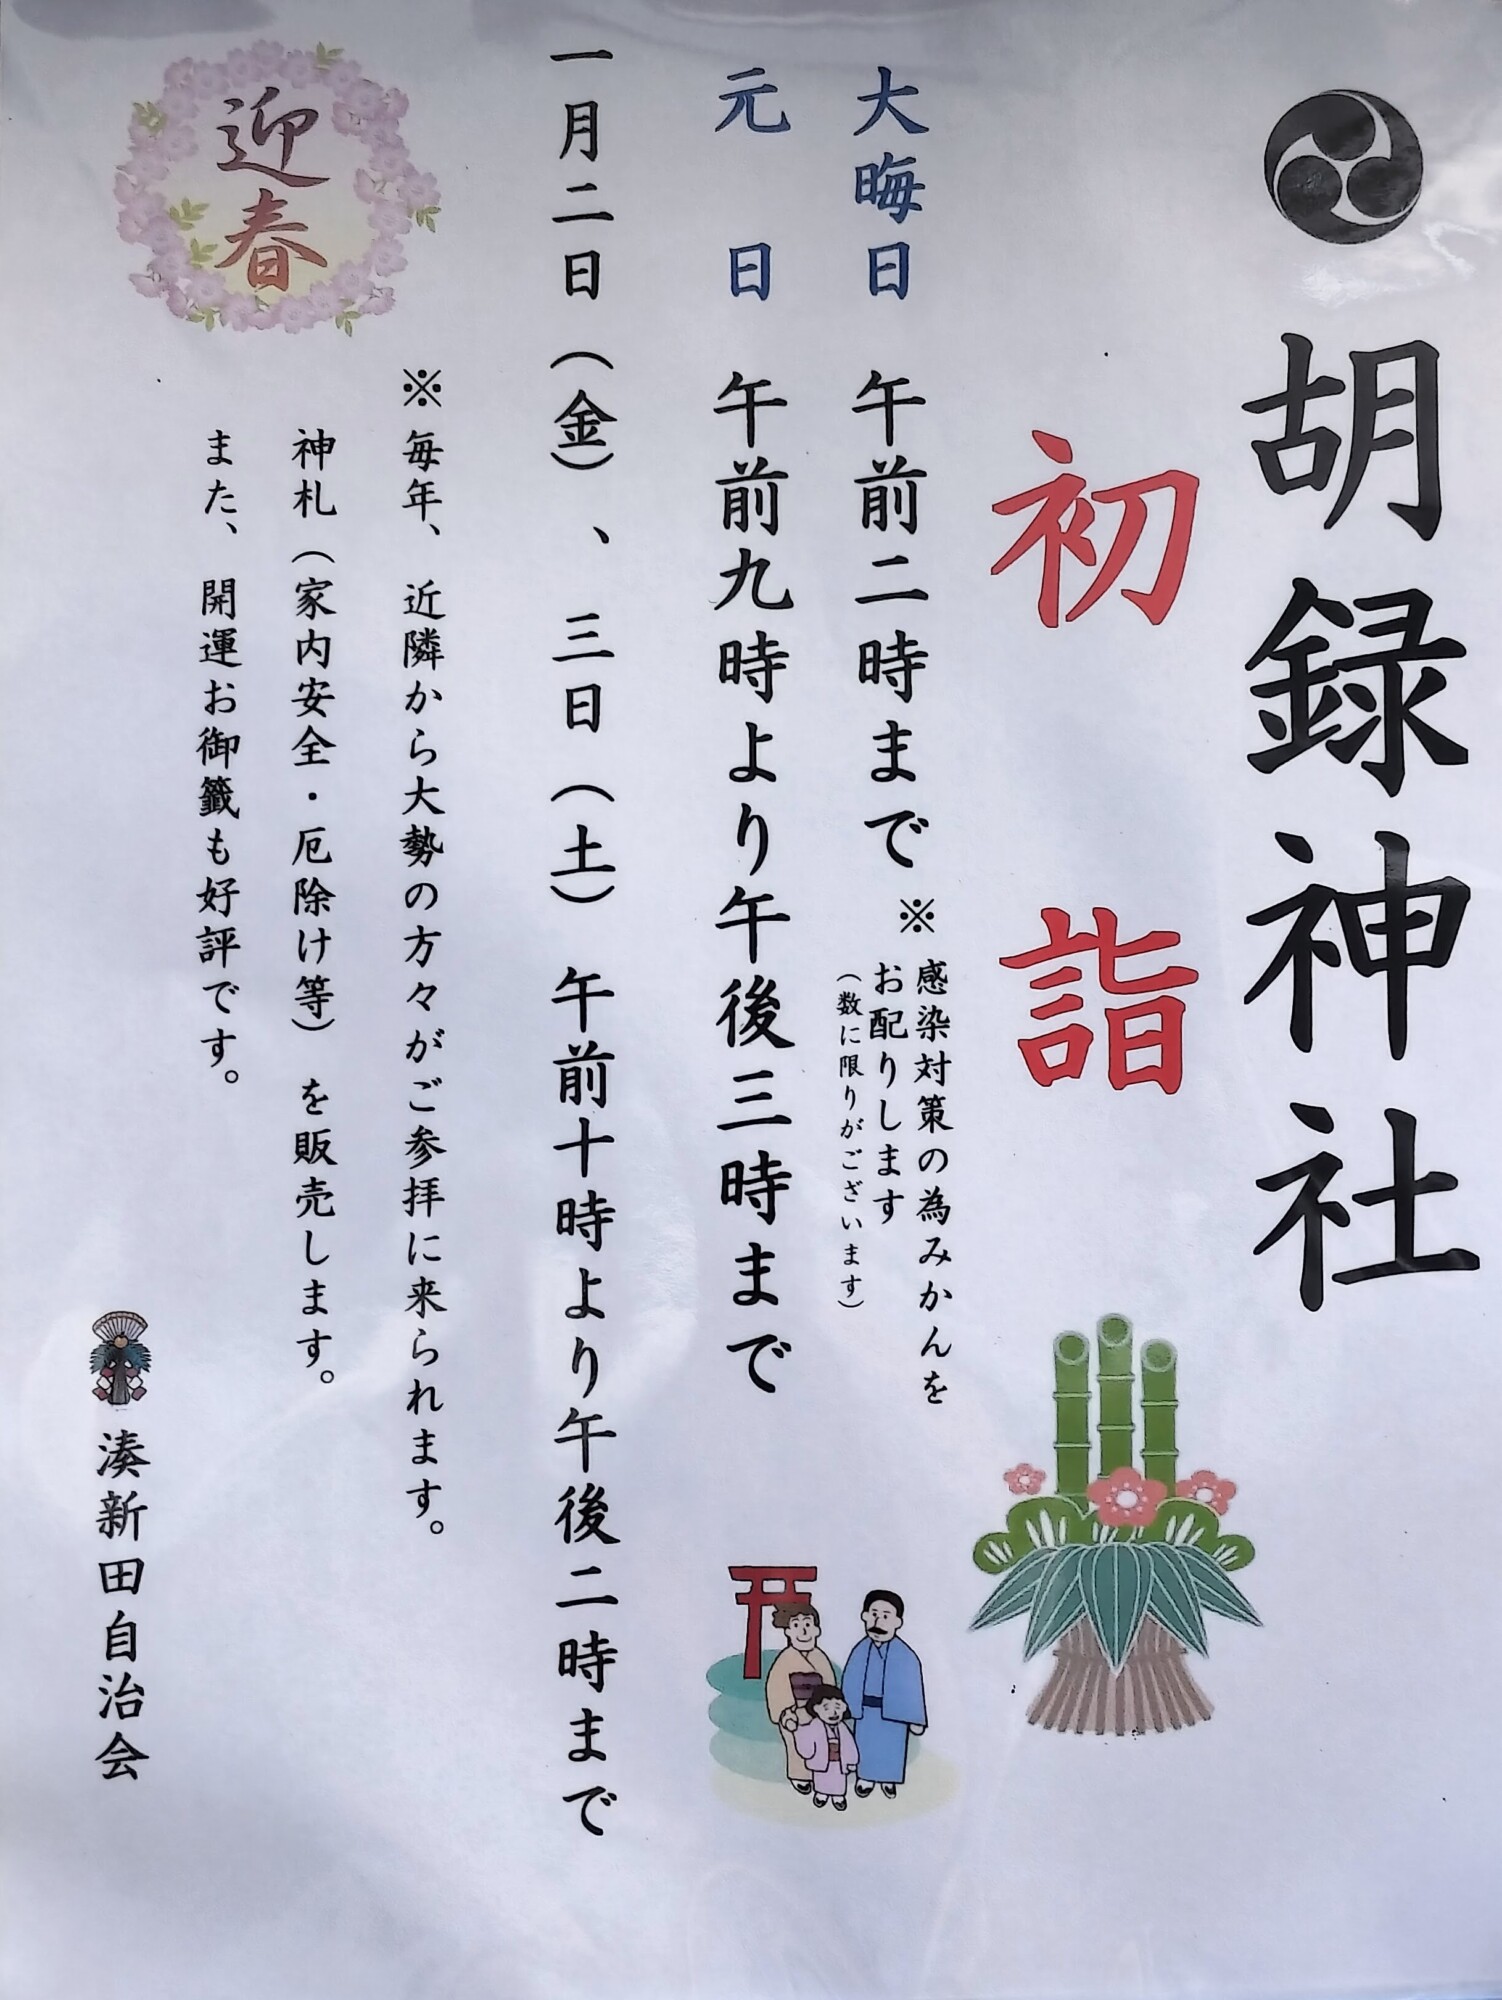 胡録神社
初詣
大晦日 午前二時まで
※感染対策の為みかんを
お配りします
(数に限りがございます)
元日 午前九時より午後三時まで
一月二日(金)、三日(土) 午前十時より午後二時まで
※毎年、近隣から大勢の方々がご参拝に来られます。
神札(家内安全・厄除け等)を販売します。
また、開運お御籤も好評です。
迎春
湊新田自治会